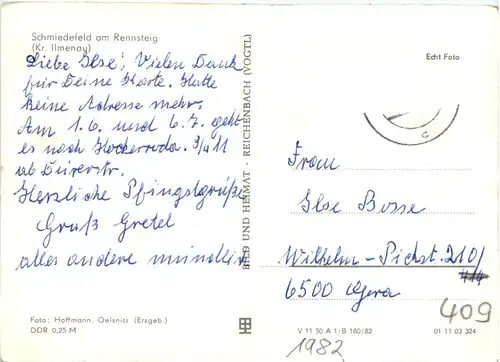 Schmiedefeld am Rennsteig
(Kr. Ilmenau)
Liebe Ilse! Vielen Dank
für Deine Karte. Hatte
keine Adresse mehr.
Am 1.6. und 6.7. geht
es nach Hockeroda. 3/4 11
ab Dürerstr.
Herzliche Pfingstgrüße
Gruß Gretel
alles andere mündlich
Foto: Hoffmann, Oelsnitz (Erzgeb.)
DDR 0,25 M
BILD UND HEIMAT · REICHENBACH (VOGTL)
Echt Foto
Frau
Ilse Bosse
Wilhelm-Pickst. 210/
6500 Gera
409
V 11 50 A 1/B 160/82
01 11 03 324
1982